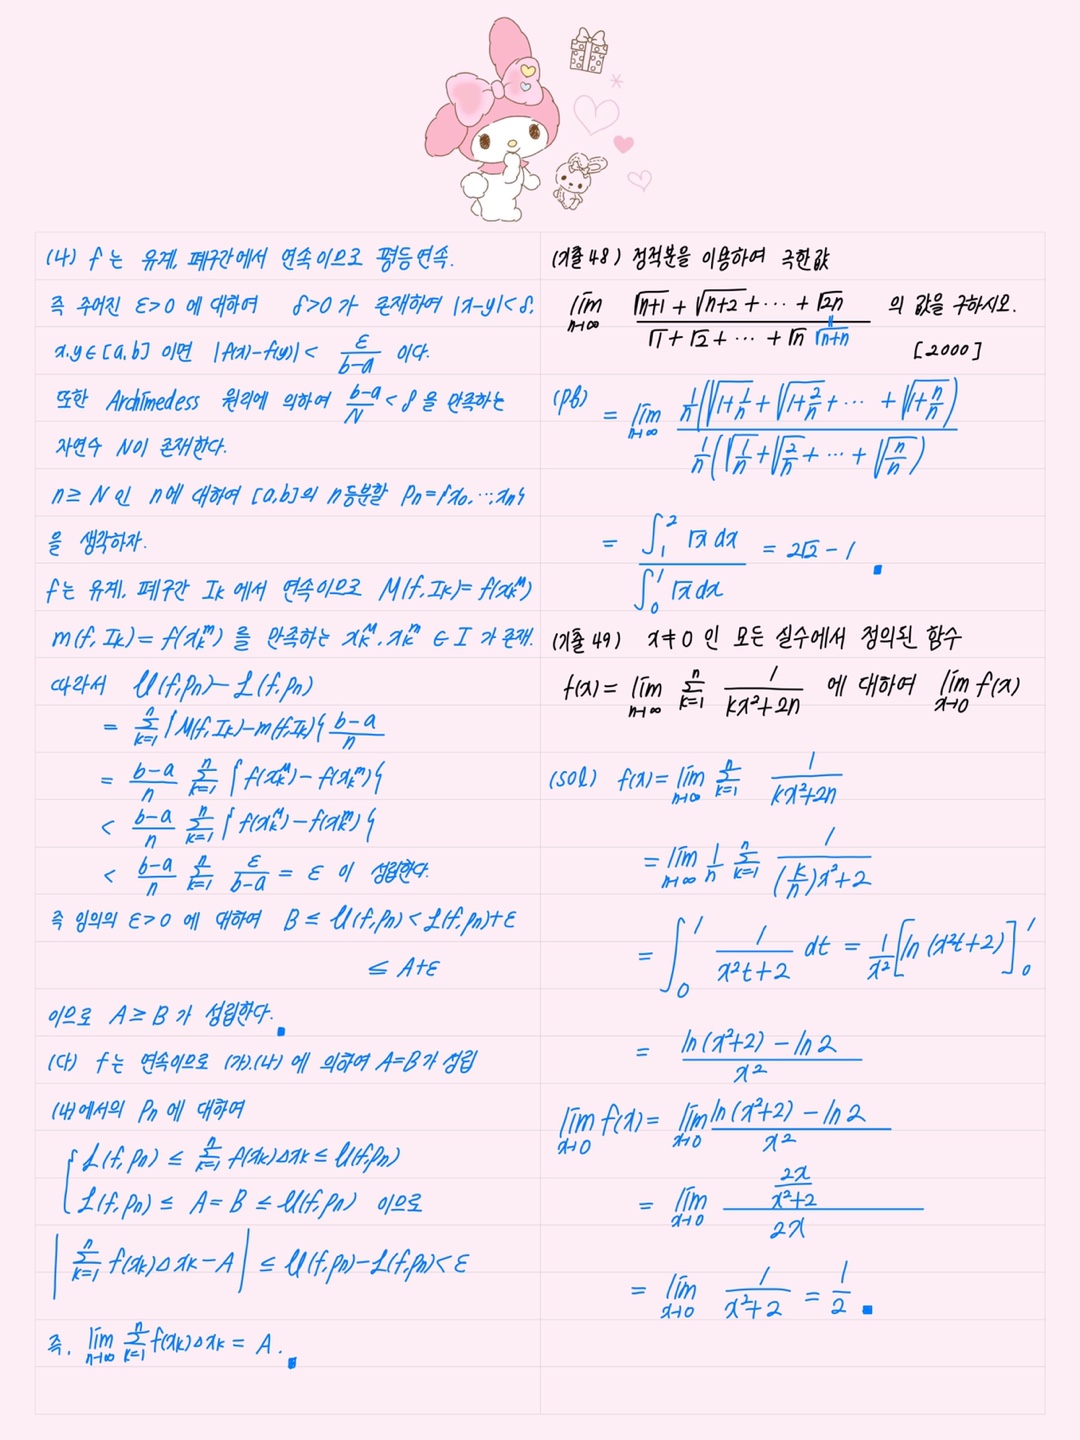 (나) f는 유계, 폐구간에서 연속이므로 평등연속.
즉 주어진 ε>0 에 대하여 δ>0 가 존재하여 |x-y|<δ,
x,y∈[a,b] 이면 |f(x)-f(y)| < ε/(b-a) 이다.
또한 Archimedess 원리에 의하여 (b-a)/N < δ 을 만족하는
자연수 N이 존재한다.
n≥N 인 n에 대하여 [a,b]의 n등분할 Pn={x₀, …, xn}
을 생각하자.
f는 유계, 폐구간 Iₖ 에서 연속이므로 M(f,Iₖ)=f(xₖᴹ)
m(f,Iₖ)=f(xₖᵐ) 를 만족하는 xₖᴹ, xₖᵐ ∈ I 가 존재.
따라서 U(f,Pn)-L(f,Pn)
= Σ_{k=1}^{n} {M(f,Iₖ)-m(f,Iₖ)} (b-a)/n
= (b-a)/n Σ_{k=1}^{n} {f(xₖᴹ)-f(xₖᵐ)}
< (b-a)/n Σ_{k=1}^{n} {f(xₖᴹ)-f(xₖᵐ)}
< (b-a)/n Σ_{k=1}^{n} ε/(b-a) = ε 이 성립한다.
즉 임의의 ε>0 에 대하여 B ≤ U(f,Pn) < L(f,Pn)+ε
≤ A+ε
이므로 A≥B 가 성립한다.
(다) f는 연속이므로 (가),(나) 에 의하여 A=B가 성립
(나)에서의 Pn 에 대하여
{ L(f,Pn) ≤ Σ_{k=1}^{n} f(xₖ)Δxₖ ≤ U(f,Pn)
L(f,Pn) ≤ A=B ≤ U(f,Pn) 이므로
| Σ_{k=1}^{n} f(xₖ)Δxₖ - A | ≤ U(f,Pn)-L(f,Pn) < ε
즉, lim_{n→∞} Σ_{k=1}^{n} f(xₖ)Δxₖ = A.
(기출 48) 정적분을 이용하여 극한값
lim_{n→∞} (√(n+1) + √(n+2) + ⋯ + √(2n)) / (√1 + √2 + ⋯ + √n) 의 값을 구하시오.
√(n+n)
[2000]
(pf) = lim_{n→∞} (1/n (√(1+1/n) + √(1+2/n) + ⋯ + √(1+n/n))) / (1/n (√(1/n) + √(2/n) + ⋯ + √(n/n)))
= (∫₁² √x dx) / (∫₀¹ √x dx) = 2√2 - 1
(기출 49) x≠0 인 모든 실수에서 정의된 함수
f(x) = lim_{n→∞} Σ_{k=1}^{n} 1/(kx²+2n) 에 대하여 lim_{x→0} f(x)
(sol) f(x) = lim_{n→∞} Σ_{k=1}^{n} 1/(kx²+2n)
= lim_{n→∞} 1/n Σ_{k=1}^{n} 1/((k/n)x²+2)
= ∫₀¹ 1/(x²t+2) dt = 1/x² [ln(x²t+2)]₀¹
= (ln(x²+2) - ln2)/x²
lim_{x→0} f(x) = lim_{x→0} (ln(x²+2) - ln2)/x²
= lim_{x→0} (2x/(x²+2))/(2x)
= lim_{x→0} 1/(x²+2) = 1/2